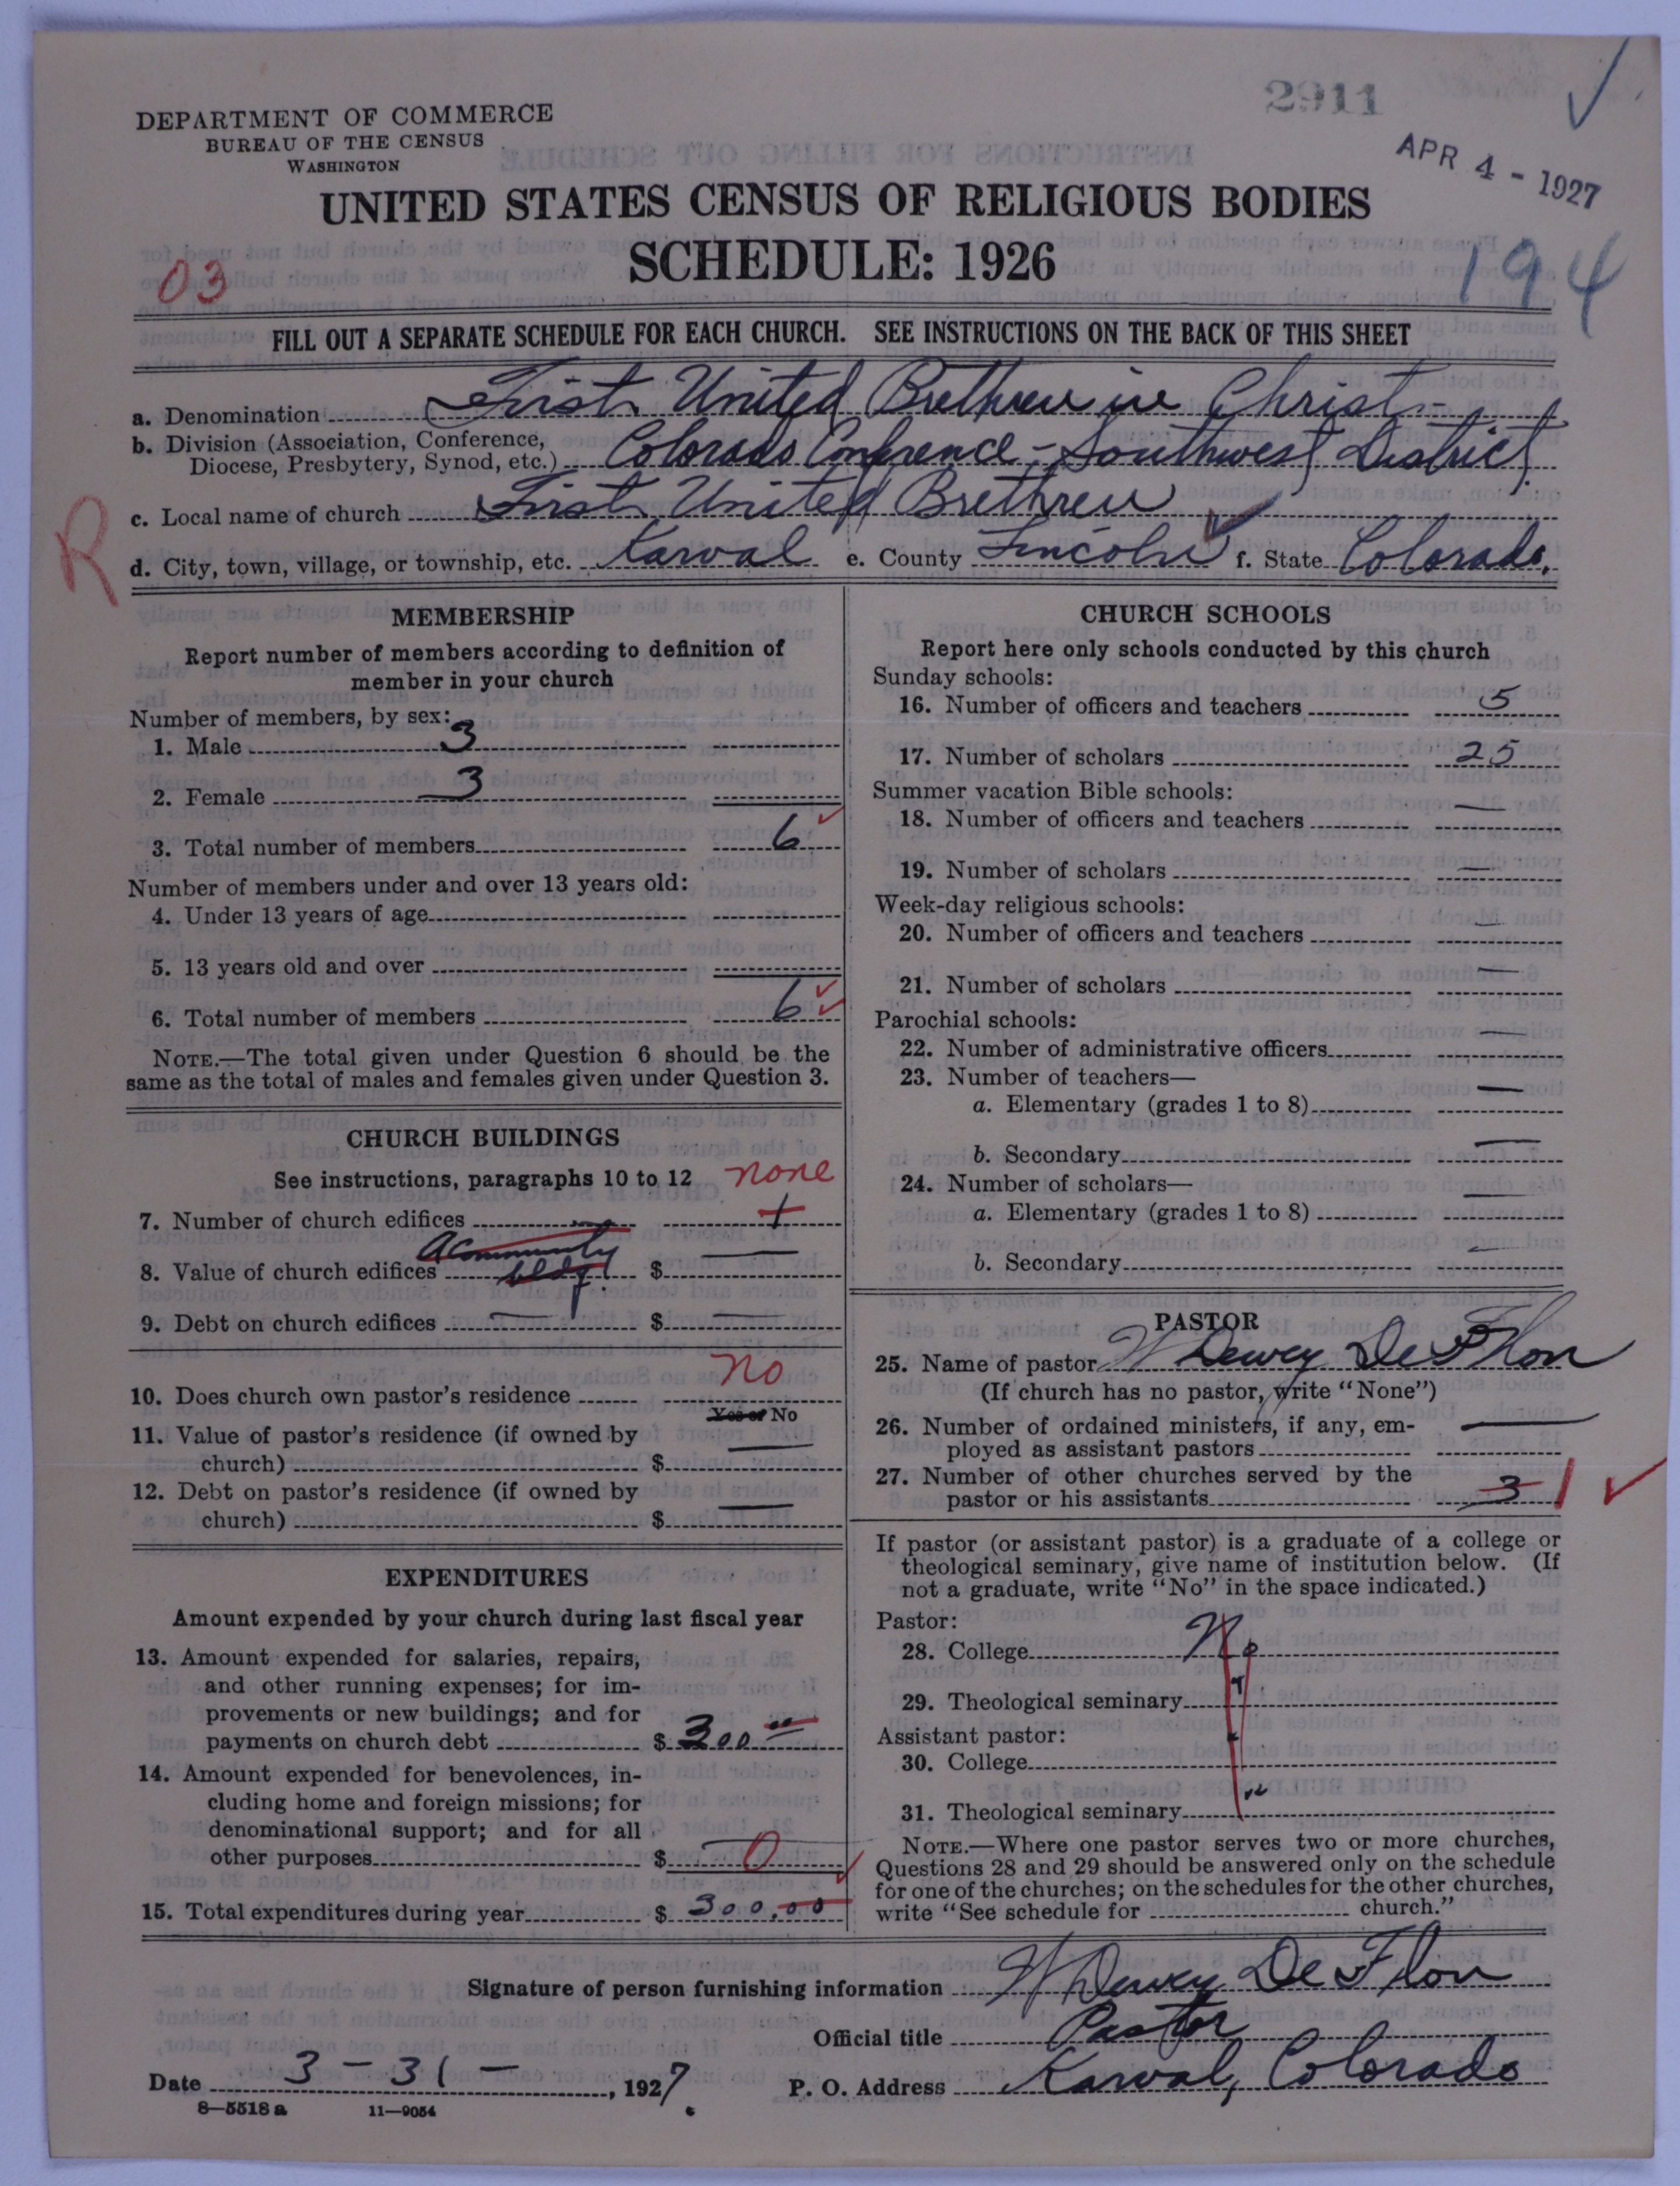 2911
APR 4 - 1927
194
DEPARTMENT OF COMMERCE
BUREAU OF THE CENSUS
WASHINGTON
UNITED STATES CENSUS OF RELIGIOUS BODIES
SCHEDULE: 1926
03
FILL OUT A SEPARATE SCHEDULE FOR EACH CHURCH. SEE INSTRUCTIONS ON THE BACK OF THIS SHEET
a. Denomination First United Brethren in Christ
b. Division (Association, Conference,
Diocese, Presbytery, Synod, etc.) Colorado Conference - Southwest District
c. Local name of church First United Brethren
R
d. City, town, village, or township, etc. Karval e. County Lincoln f. State Colorado.
MEMBERSHIP
Report number of members according to definition of
member in your church
Number of members, by sex:
1. Male 3
2. Female 3
3. Total number of members 6
Number of members under and over 13 years old:
4. Under 13 years of age
5. 13 years old and over
6. Total number of members 6
NOTE.—The total given under Question 6 should be the
same as the total of males and females given under Question 3.
CHURCH BUILDINGS
See instructions, paragraphs 10 to 12 none
7. Number of church edifices 1
a Community
8. Value of church edifices bldg. $ —
9. Debt on church edifices — $ —
10. Does church own pastor's residence no
Yes or No
11. Value of pastor's residence (if owned by
church) $ —
12. Debt on pastor's residence (if owned by
church) $ —
EXPENDITURES
Amount expended by your church during last fiscal year
13. Amount expended for salaries, repairs,
and other running expenses; for im-
provements or new buildings; and for
payments on church debt $ 300 00
14. Amount expended for benevolences, in-
cluding home and foreign missions; for
denominational support; and for all
other purposes $ 0
15. Total expenditures during year $ 300.00
CHURCH SCHOOLS
Report here only schools conducted by this church
Sunday schools:
16. Number of officers and teachers 5
17. Number of scholars 25
Summer vacation Bible schools:
18. Number of officers and teachers —
19. Number of scholars —
Week-day religious schools:
20. Number of officers and teachers —
21. Number of scholars —
Parochial schools:
22. Number of administrative officers —
23. Number of teachers—
a. Elementary (grades 1 to 8) —
b. Secondary —
24. Number of scholars—
a. Elementary (grades 1 to 8) —
b. Secondary —
PASTOR
25. Name of pastor W Dewey De Flon
(If church has no pastor, write "None")
26. Number of ordained ministers, if any, em-
ployed as assistant pastors —
27. Number of other churches served by the
pastor or his assistants 3 1
If pastor (or assistant pastor) is a graduate of a college or
theological seminary, give name of institution below. (If
not a graduate, write "No" in the space indicated.)
Pastor:
28. College No
29. Theological seminary "
Assistant pastor:
30. College "
31. Theological seminary "
NOTE.—Where one pastor serves two or more churches,
Questions 28 and 29 should be answered only on the schedule
for one of the churches; on the schedules for the other churches,
write "See schedule for church."
Signature of person furnishing information W Dewey De Flon
Official title Pastor
Date 3 - 31 - , 1927. P. O. Address Karval, Colorado
8—5518 a 11—9054